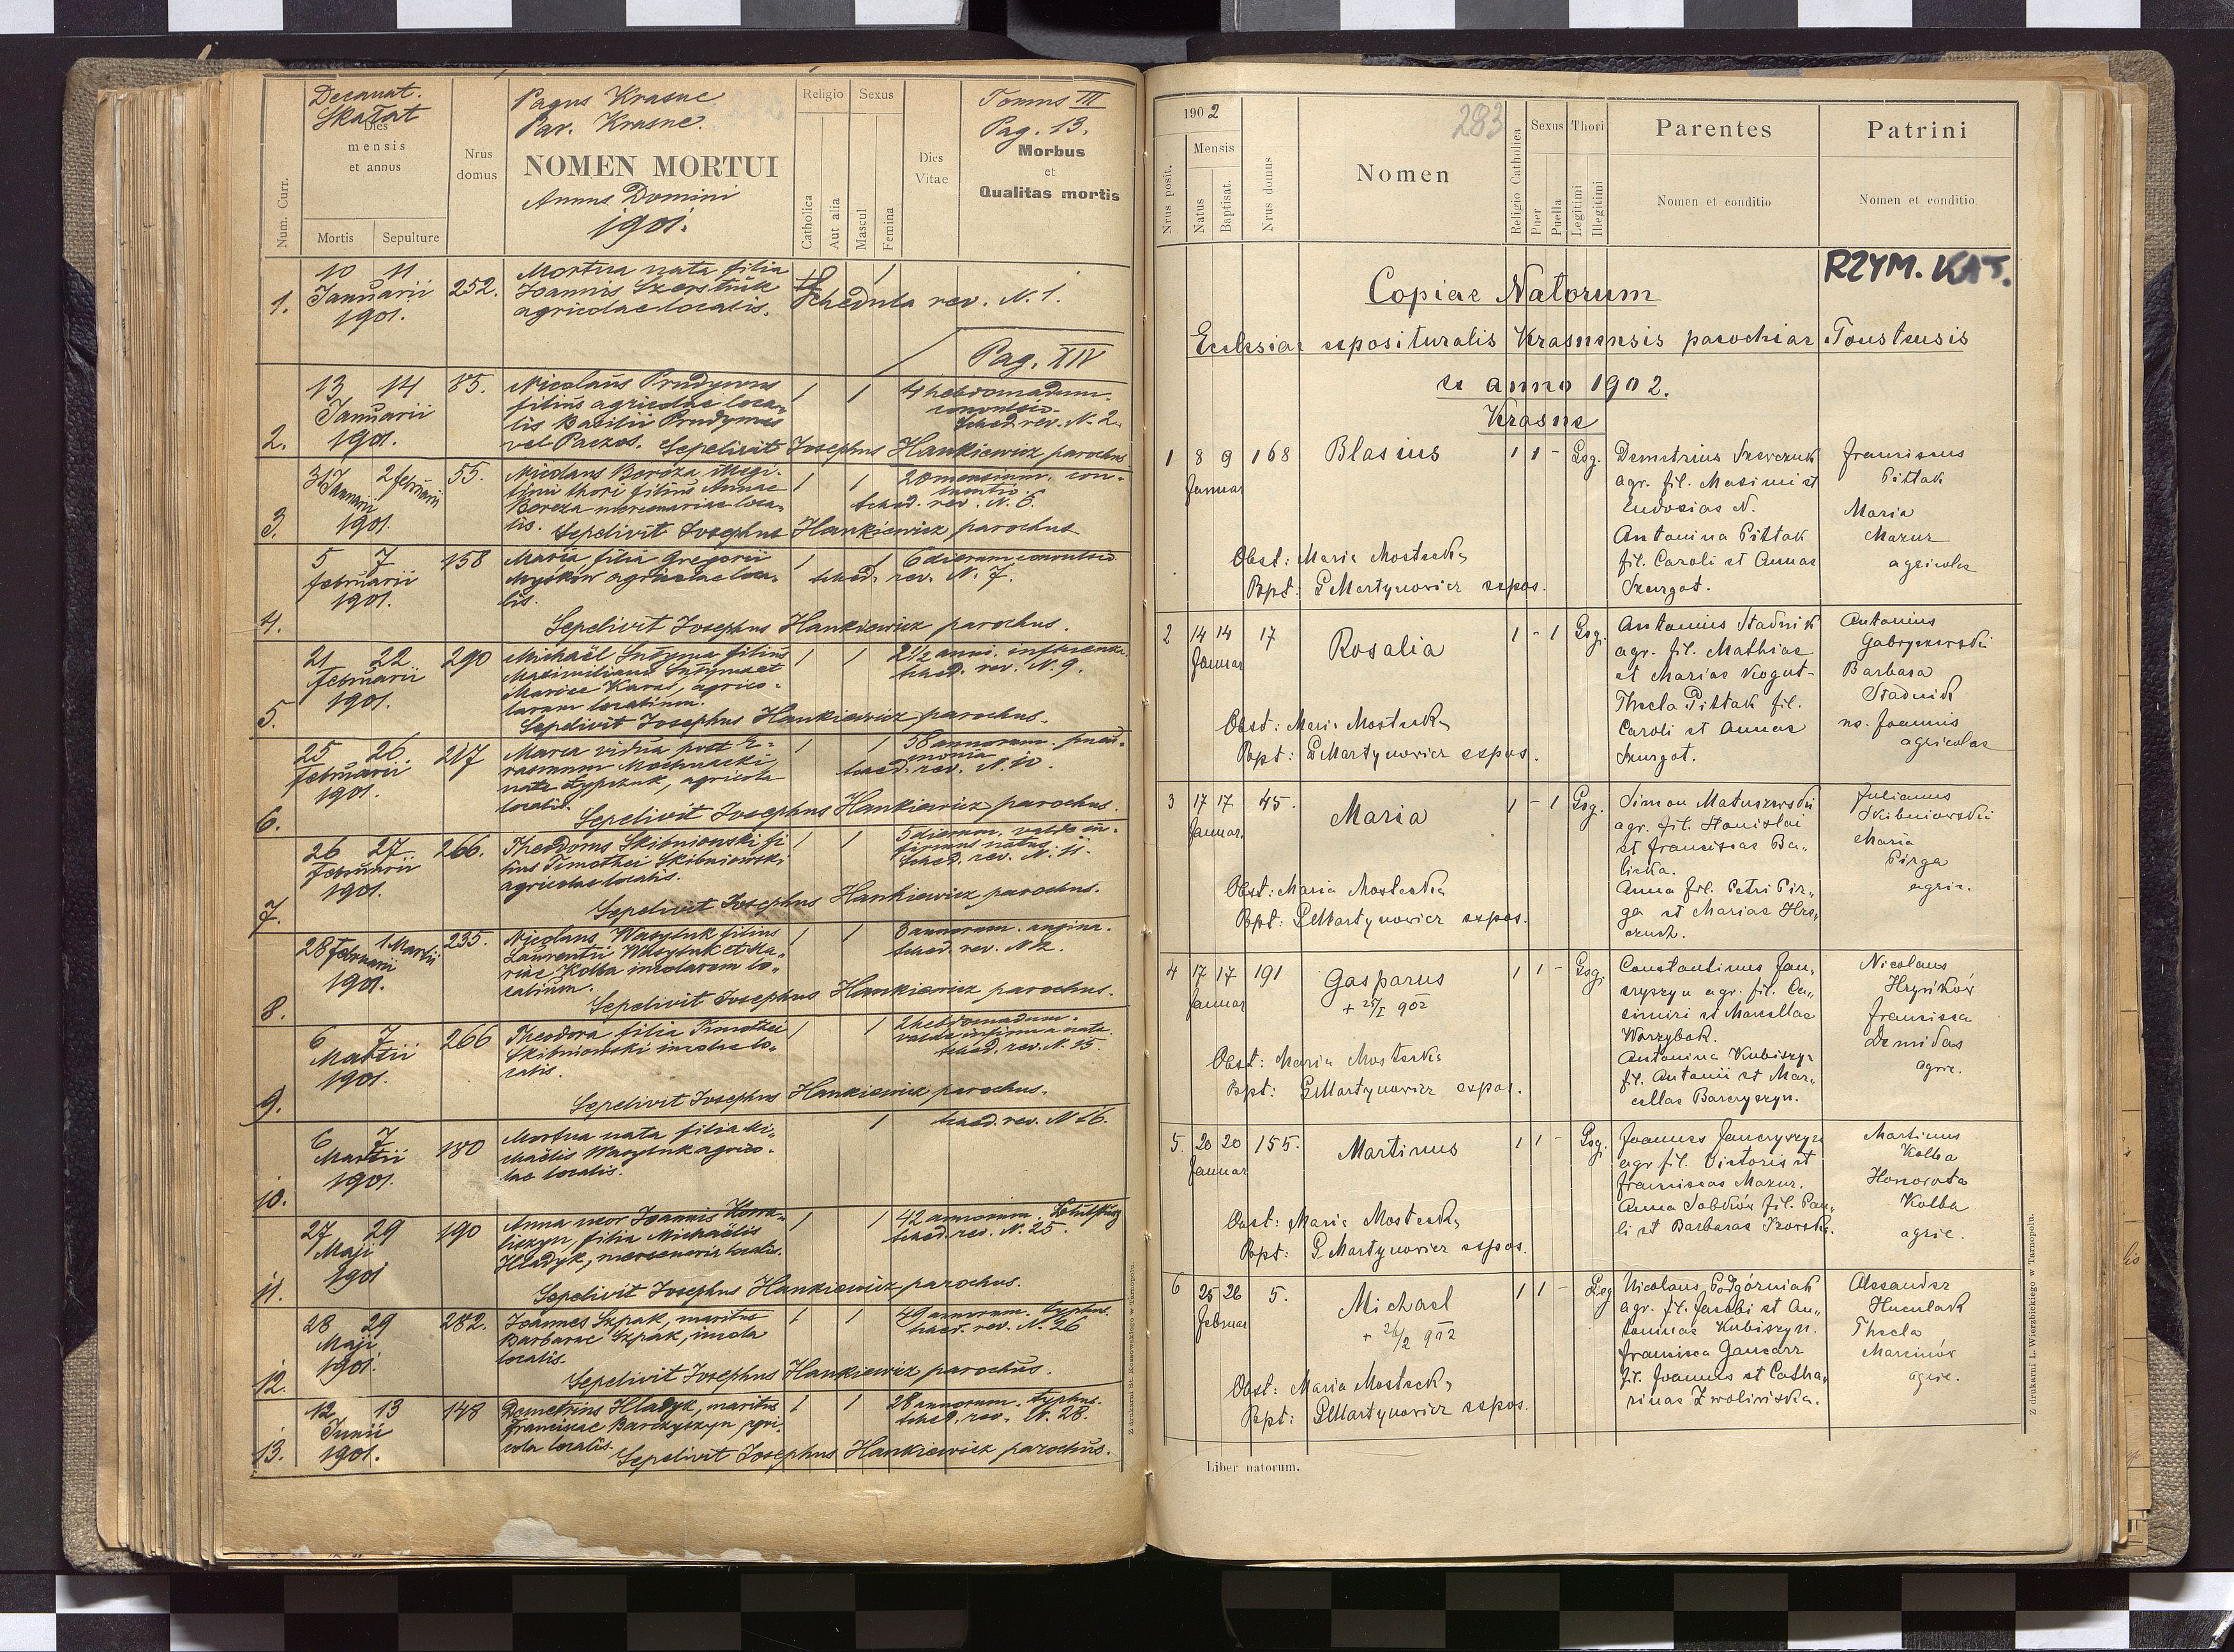 Decanat.
Skałat
Pagus Krasne
Par. Krasne.
Tomus III
Pag. 13.
Num. Curr.
Dies
mensis
et annus
Mortis
Sepulture
Nrus
domus
NOMEN MORTUI
Annus Domini
1901.
Religio
Catholica
Aut alia
Sexus
Mascul
Femina
Dies
Vitae
Morbus
et
Qualitas mortis
1.
10 11
Januarii
1901.
252.
Mortua nata filia
Joannis
agricolae localis.
Schedula rev. N. 1.
Pag. XIV
2.
13 14
Januarii
1901.
85.
Nicolaus Prudywus
filius agricolae loca„
lis Basilii Prudywus
vel Paczos. Sepelivit Josephus Hankiewicz parochus
1 1
4 hebdomadum.
convulsio.
Sched. rev. N. 2.
3.
31 Januarii 2 februarii
1901.
55.
Nicolaus Bereza illegi„
timi thori filius Annae
Bereza mercenariae loca„
lis. Sepelivit Josephus Hankiewicz parochus
1 1
20 mensium. con„
Sched. rev. N. 6.
4.
5 7
februarii
1901.
158
Maria filia Gregorii
Myskiw agricolae loca„
lis.
Sepelivit Josephus Hankiewicz parochus.
1 1
6 dierum convulsio
Sched. rev. N. 7.
5.
21 22
februarii
1901.
290
Michaël filius
Maximiliani et
Mariae Karas, agrico„
larum localium.
Sepelivit Josephus Hankiewicz parochus.
1 1
2 1/2 anni.
Sched. rev. N. 9.
6.
25 26.
februarii
1901.
217
Maria vidua post E„
rasmum Mochnacki,
nata Łypczuk, agricola
localis.
Sepelivit Josephus Hankiewicz parochus.
1 1
58 annorum. pneu„
monia
Sched. rev. N. 10.
7.
26 27
februarii
1901.
266.
Theodorus Skibniowski fi
lius Timothei Skibniowski
agricolae localis.
Sepelivit Josephus Hankiewicz parochus.
1 1
5 dierum. valde in„
firmus natus.
Sched. rev. N. 11.
8.
28 Februarii 1 Martii
1901.
235.
Nicolaus Wasyluk filius
Laurentii Wasyluk et Ma„
riae Kolba inolarum lo„
calium.
Sepelivit Josephus Hankiewicz parochus.
1 1
3 annorum. angina.
Sched. rev. N 12.
9.
6 7
Martii
1901.
266
Theodora filia Timothei
Skibniowski incolae lo„
calis.
Sepelivit Josephus Hankiewicz parochus.
1 1
2 hebdomadum.
valde infirma nata.
Sched. rev. N. 15.
10.
6 7
Martii
1901.
180
Mortua nata filia Mi„
chaëlis Wasyluk agrico„
lae localis.
1
Sched. rev. N 16.
11.
27 29
Maji
1901
190
Anna uxor Joannis
filia Michaëlis
Hladyk, mercenaria localis.
Sepelivit Josephus Hankiewicz parochus.
1 1
42 annorum.
Sched. rev. N. 25.
12.
28 29
Maji
1901.
282.
Joannes Szpak, maritus
Barbarae Szpak, incola
localis.
Sepelivit Josephus Hankiewicz parochus.
1 1
49 annorum. typhus.
Sched. rev. N. 26
13.
12 13
Junii
1901.
148
Demetrius Hladyk, maritus
Franciscae Barczyszyn, agri„
cola localis.
Sepelivit Josephus Hankiewicz parochus.
1 1
28 annorum. typhus.
Sched. rev. N. 28.
Z drukarni St. Kossowskiego w Tarnopolu.
283
1902
Nrus posit.
Mensis
Natus
Baptisat.
Nrus domus
Nomen
Religio Catholica
Sexus
Puer
Puella
Thori
Legitimi
Illegitimi
Parentes
Nomen et conditio
Patrini
Nomen et conditio
RZYM. KAT.
Copiae Natorum
Ecclesiae exposituralis Krasnensis parochiae Toustensis
ex anno 1902.
Krasne
1 8 9 168 Blasius 1 1 - Leg.
Januar
Demetrius Szewczuk
agr. fil. Maximi et
Eudosias N.
Antonina Pittak
fil. Caroli et Annae
Szurgot.
Franciscus
Pittak
Maria
Mazur
agricolae
Obst: Maria Mosteck„
Bapt: G Martynowicz expos.
2 14 14 17 Rosalia 1 - 1 Leg.
Januar
Antonius Stadnik
agr. fil. Mathiae
et Marias Kogut-
Thecla Pittak fil.
Caroli et Annae
Szurgot.
Antonius
Gabryszewski
Barbara
Stadnik
ux. Joannis
agricolae
Obst: Maria Mosteck„
Bapt: G Martynowicz expos.
3 17 17 45. Maria 1 - 1 Leg.
Januar.
Simon Matuszewski
agr. fil. Stanislai
et Franciscas Ba„
licka.
Anna fil. Petri Pir„
ga et Marias
Julianus
Skibniowski
Maria
Pirga
agric.
Obst: Maria Mostecka
Bapt: G Martynowicz expos.
4 17 17 191 Gasparus 1 1 - Leg.
Januar
+ 25/I 902
Constantinus Jan„
czyszyn agr. fil. Ca„
simiri et Marcellae
Warzybok.
Antonina Kubiszyn
fil. Antonii et Mar„
cellas Barczyszyn.
Nicolaus
Hryńków
Francisca
Demidas
agric.
Obst: Maria Mosteck„
Bapt: G Martynowicz expos.
5. 20 20 155. Martinus 1 1 - Leg.
Januar
Joannes Janczyszyn
agr fil. Victoris et
Franciscas Mazur.
Anna Sobków fil. Pau„
li et Barbaras
Martinus
Kolba
Honorata
Kolba
agric.
Obst: Maria Mosteck„
Bapt: G Martynowicz expos.
6 25 26 5. Michael 1 1 - Leg
Februar
+ 26/2 902
Nicolaus Podgórniak
agr. fil. Jacobi et An„
tonnas Kubiszyn.
Francisca Gancarz
fil. Joannis et Catha„
rinas Zwolińska.
Alexander
Huculak
Thecla
Marcinów
agric.
Obst: Maria Mosteck„
Bapt: G Martynowicz expos.
Liber natorum.
Z drukarni L. Wierzbickiego w Tarnopolu.